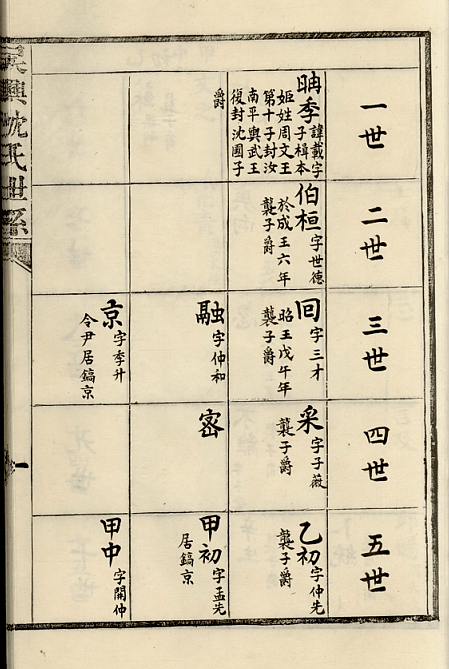 一世
冉季 諱載字
子楫本
姬姓周文王
第十子封汝
南平輿武王
復封沈國子
爵
二世
伯桓 字世德
於成王六年
襲子爵
三世
回 字三才
昭王戊午年
襲子爵
融 字仲和
京 字季升
令尹居鎬京
四世
采 字子薇
襲子爵
密
五世
乙初 字仲先
襲子爵
甲初 字孟先
居鎬京
甲中 字開仲
吳興沈氏世系
一